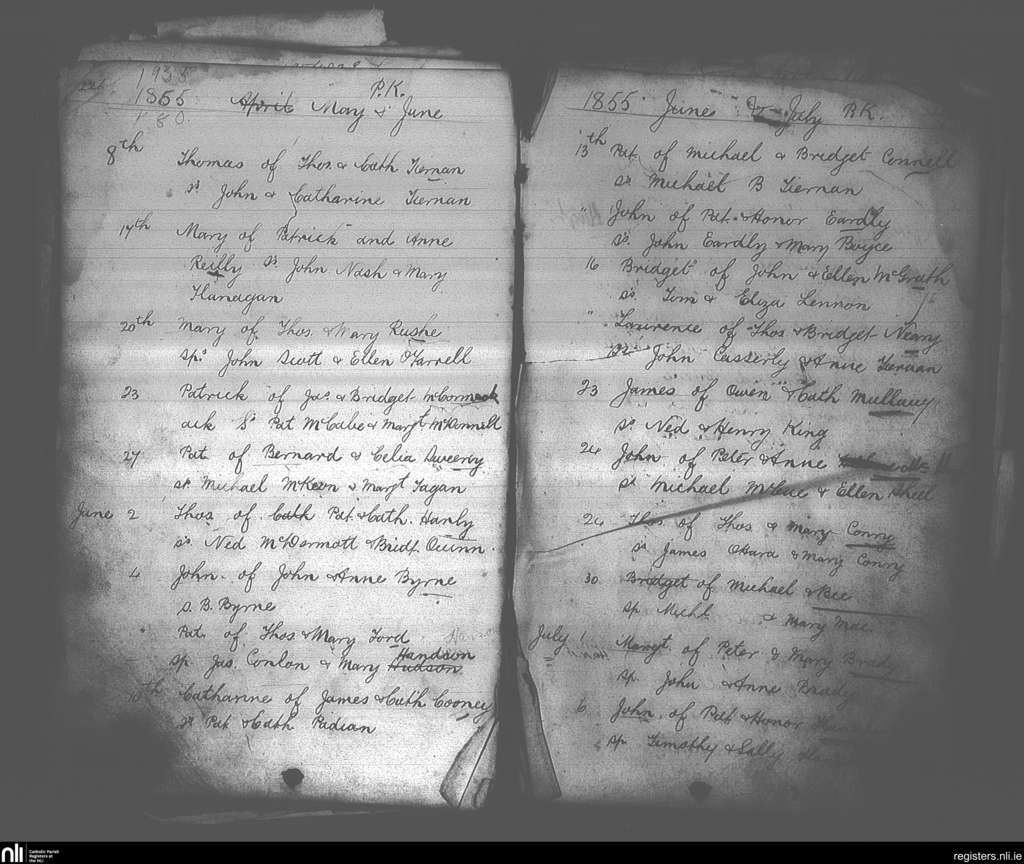 1935
1855 April May & June P.K.
180.
8th Thomas of Thos. & Cath Tiernan
Ss John & Catharine Tiernan
14th Mary of Patrick and Anne
Reilly Ss John Nash & Mary
Flanagan
20th Mary of Thos & Mary Rushe
Sps John Scott & Ellen O'Farrell
23 Patrick of Jas & Bridget McCormack
ack Ss Pat McCabe & Margt McKennell
27 Pat of Bernard & Celia Sweeny
Sr Michael McKeon & Margt Fagan
June 2 Thos of Cath Pat. & Cath. Hanly
Ss Ned McDermott & Bridt Quinn.
4 John of John & Anne Byrne
S. B. Byrne
Pat. of Thos & Mary Ford
Sp. Jas. Conlon & Mary Hudson Handson
10th Catharine of James & Cath Cooney
Sr Pat & Cath Padian
1855 June & July P.K.
13th Pat. of Michael & Bridget Connell
Sr Michael B Tiernan
" John of Pat. & Honor Eardly
Ss. John Eardly & Mary Boyce
16 Bridget of John & Ellen McGrath
Ss. Tom & Eliza Lennon
" Lawrence of Thos & Bridget Neary
Sr John Casserly & Anne Tiernan
23 James of Owen & Cath Mullany
Ss Ned & Henry King
24 John of Peter & Anne
Ss Michael McCue & Ellen
24 Thos of Thos & Mary Conry
Ss James O'Hara & Mary Conry
30 Bridget of Michael & Bee
Sp Michl & Mary
July 1 Margt of Peter & Mary Brady
Sp. John & Anne Brady
6 John of Pat & Honor
Sp Timothy & Sally
nli
Catholic Parish
Registers at
the NLI
registers.nli.ie